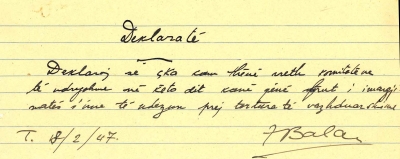 Deklaratë
Deklaroj se çka kam thënë rreth komiteteve
të ndryshme në këto dit kanë qënë frut i imagji
natës s'ime të ndezun prej torturave të vazhdueshme
T. 8/2/47. Balan